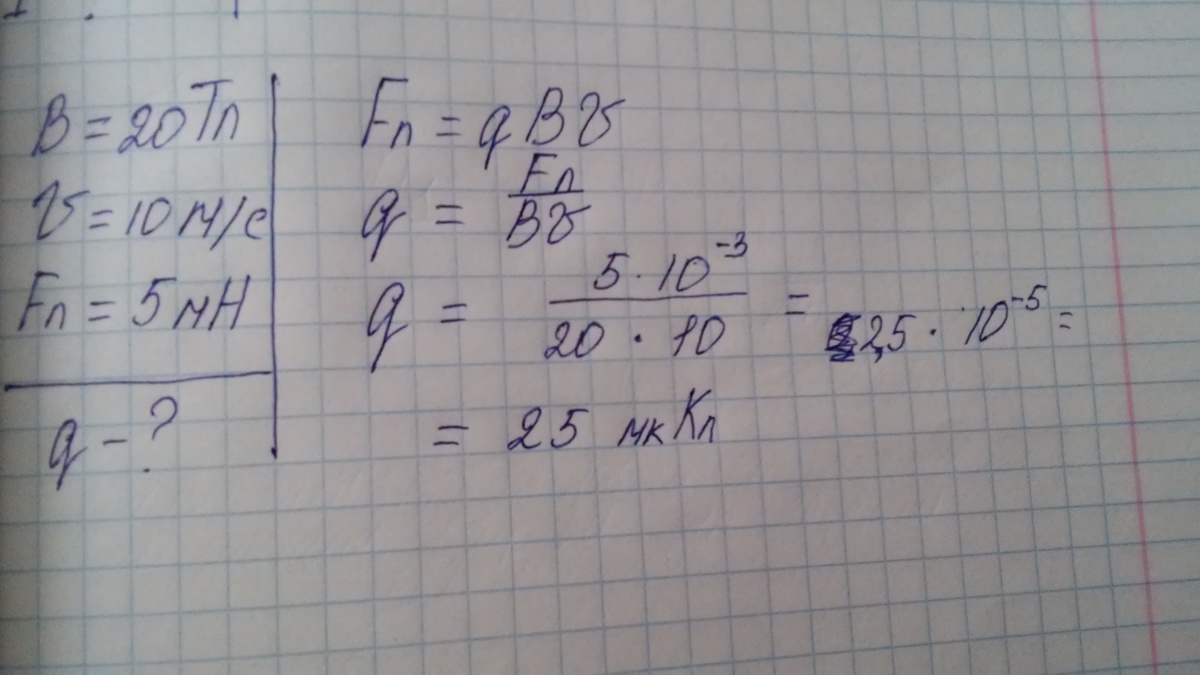 B = 20 Тл
v = 10 м/с
Fл = 5 мН
q - ?
Fл = qBv
q = Fл / Bv
q = 5 · 10⁻³ / 20 · 10 = 2,5 · 10⁻⁵ =
= 25 мкКл